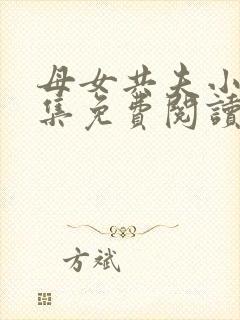 母女共夫小
集免費閱讀
方斌